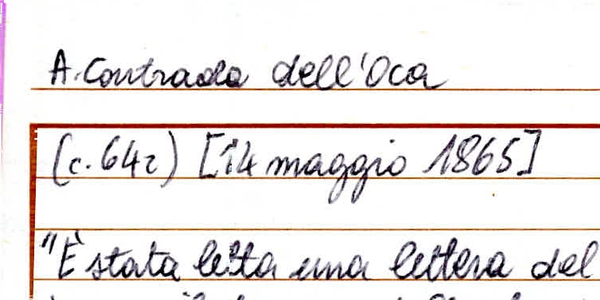 A. Contrada dell'Oca
(c. 64r) [14 maggio 1865]
"È stata letta una lettera del